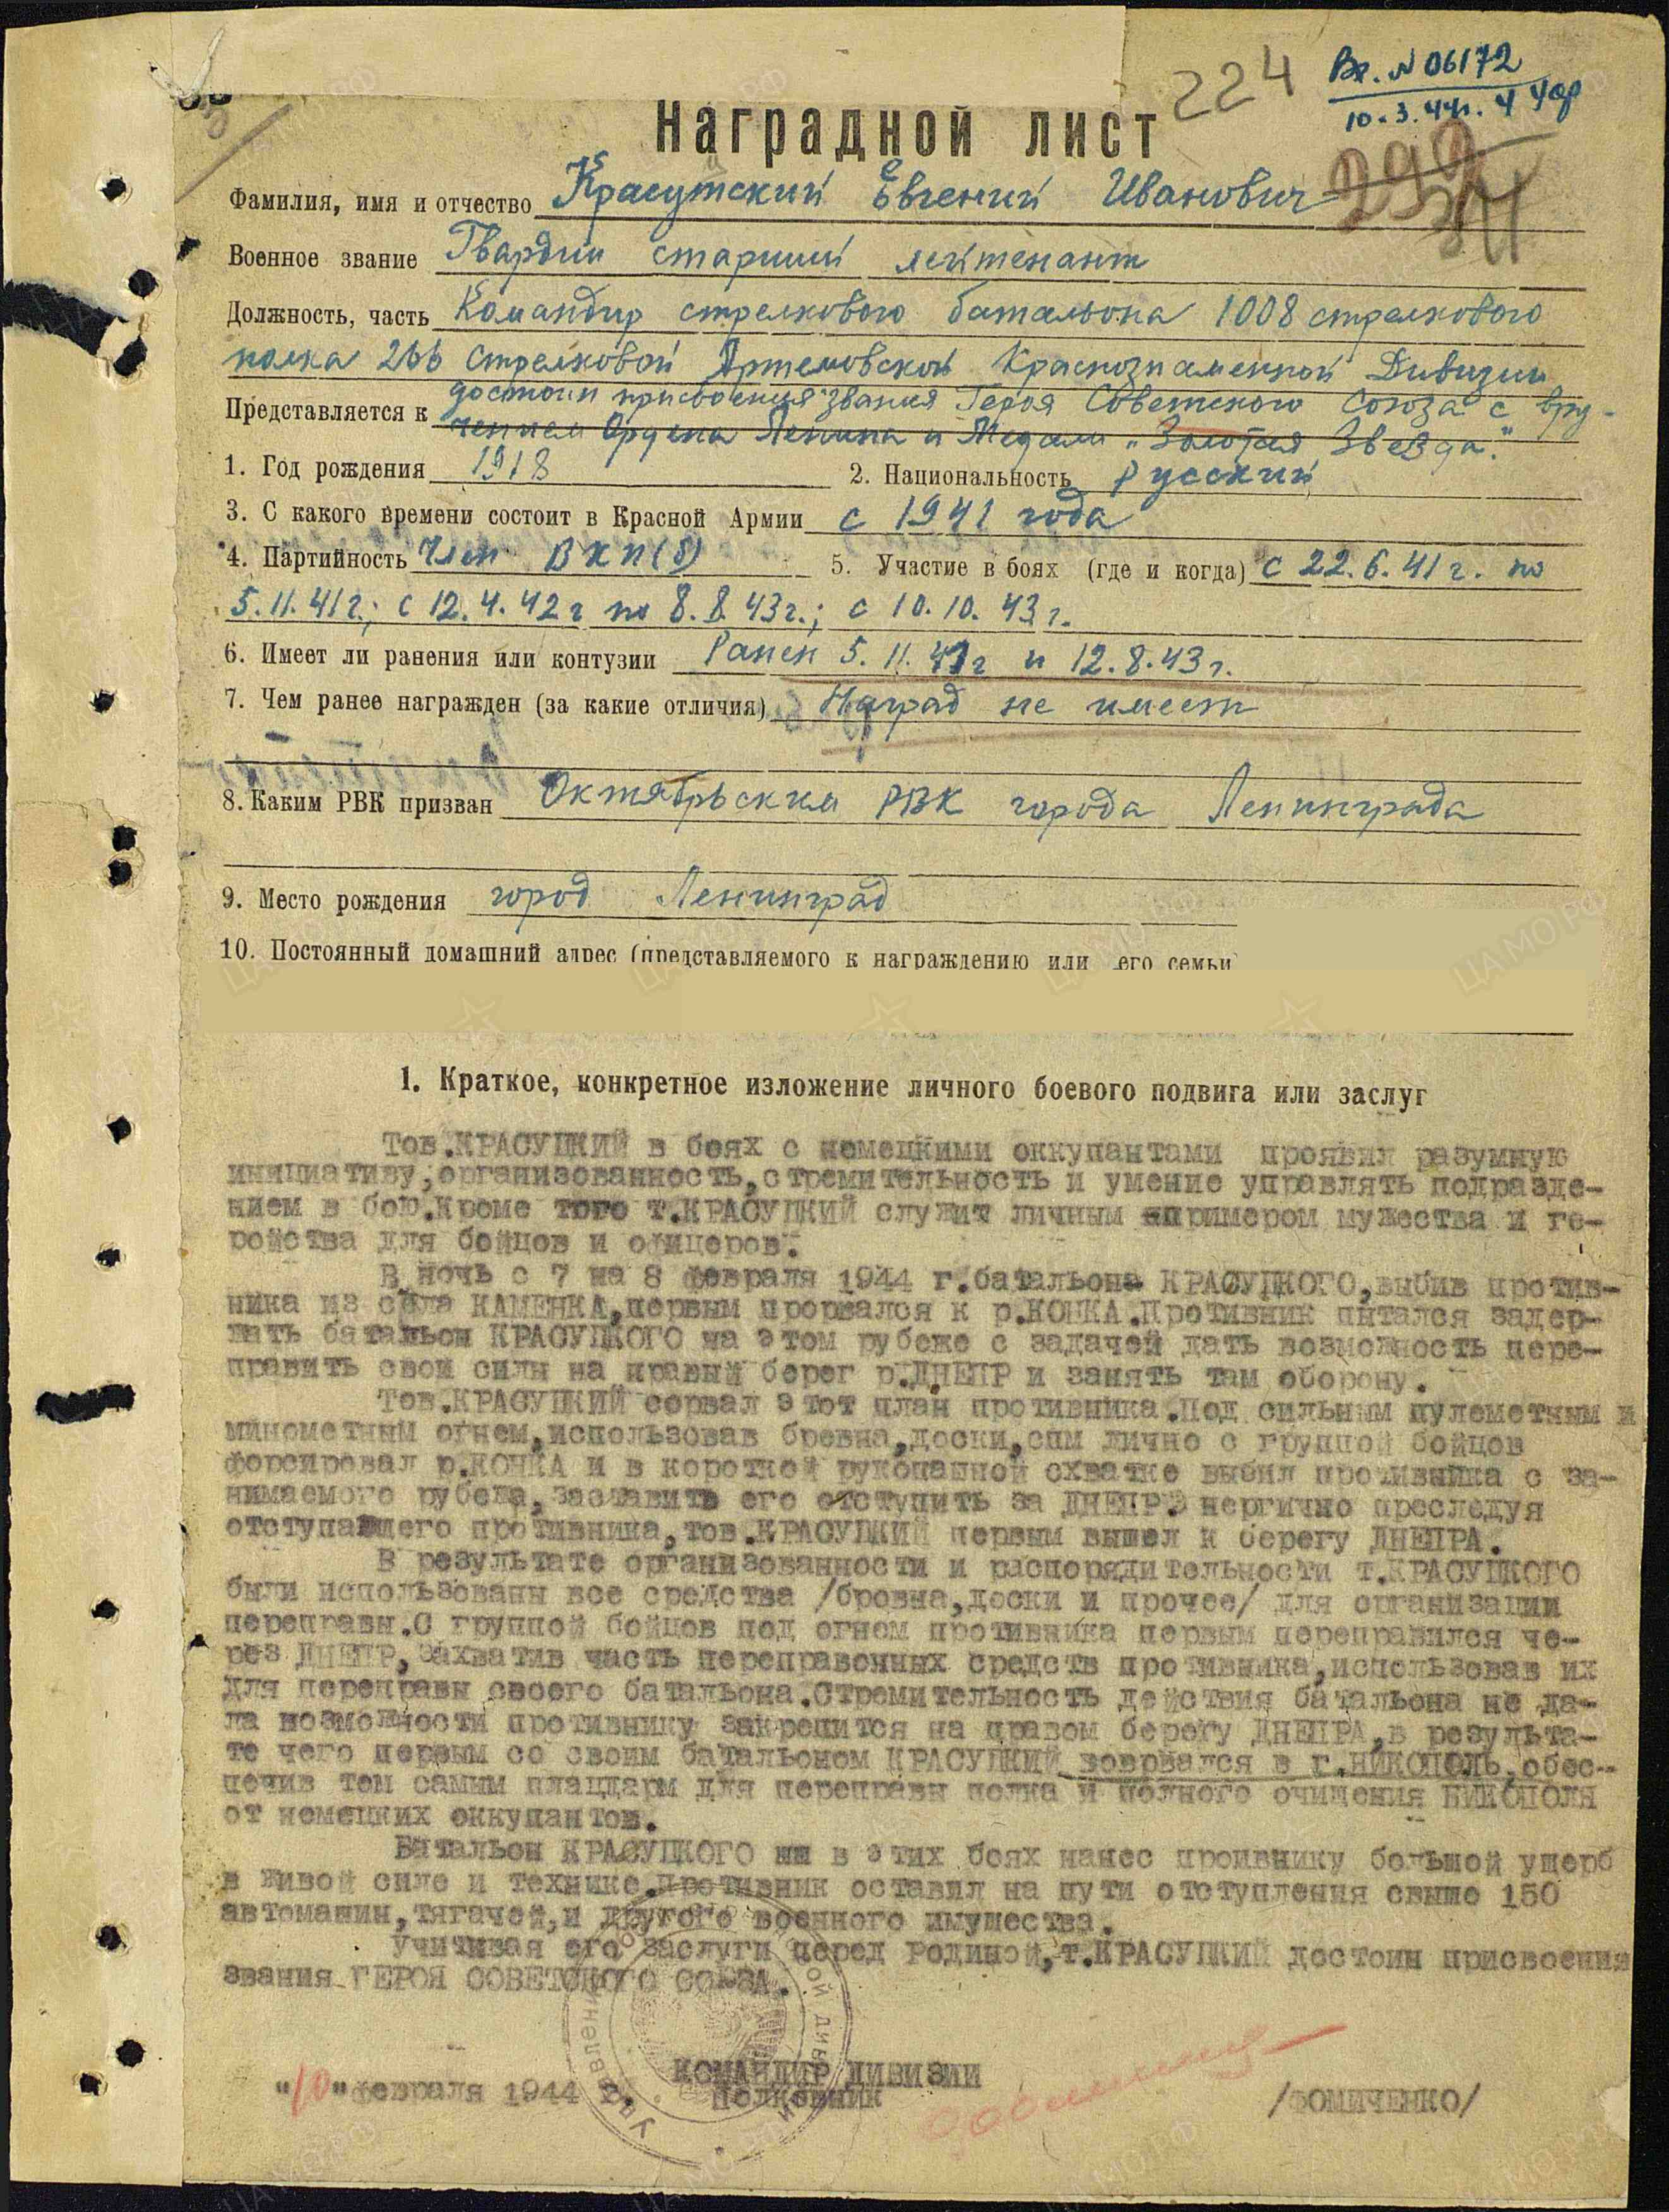 224
Вх. № 06172
10.3.44г. 4
Наградной лист
Фамилия, имя и отчество Красуцкий Евгений Иванович
Военное звание Гвардии старший лейтенант
Должность, часть Командир стрелкового батальона 1008 стрелкового
полка 266 стрелковой Артемовской Краснознаменной Дивизии
Представляется к достоин присвоения звания Героя Советского Союза с вру-
чением Ордена Ленина и Медали „Золотая Звезда."
1. Год рождения 1918 2. Национальность Русский
3. С какого времени состоит в Красной Армии с 1941 года
4. Партийность Член ВКП(б) 5. Участие в боях (где и когда) с 22.6.41г. по
5.11.41г.; с 12.4.42г по 8.8.43г.; с 10.10.43г.
6. Имеет ли ранения или контузии Ранен 5.11.41г и 12.8.43г.
7. Чем ранее награжден (за какие отличия) Наград не имеет
8. Каким РВК призван Октябрьским РВК города Ленинграда
9. Место рождения город Ленинград
10. Постоянный домашний адрес (представляемого к награждению или его семьи
1. Краткое, конкретное изложение личного боевого подвига или заслуг
Тов.КРАСУЦКИЙ в боях с немецкими оккупантами проявил разумную
инициативу,организованность,стремительность и умение управлять подразде-
нием в бою.Кроме того т.КРАСУЦКИЙ служит личным примером мужества и ге-
ройства для бойцов и офицеров.
В ночь с 7 на 8 февраля 1944 г.батальон КРАСУЦКОГО,выбив против-
ника из села КАМЕНКА,первым прорвался к р.КОНКА.Противник пытался задер-
жать батальон КРАСУЦКОГО на этом рубеже с задачей дать возможность пере-
править свои силы на правый берег р.ДНЕПР и занять там оборону.
Тов.КРАСУЦКИЙ сорвал этот план противника.Под сильным пулеметным и
минометным огнем,использовав бревна,доски,спм лично с группой бойцов
форсировал р.КОНКА и в короткой рукопашной схватке выбил противника с за-
нимаемого рубежа,заставить его отступить за ДНЕПР.Энергично преследуя
отступавшего противника,тов.КРАСУЦКИЙ первым вышел к берегу ДНЕПРА.
В результате организованности и распорядительности т.КРАСУЦКОГО
были использованы все средства /бровна,доски и прочее/ для организации
переправы.С группой бойцов под огнем противника первым переправился че-
рез ДНЕПР,захватив часть переправочных средств противника,использовав их
для переправы своего батальона.Стремительность действия батальона не да-
ла возможности противнику закрепится на правом берегу ДНЕПРА,в результа-
те чего первым со своим батальоном КРАСУЦКИЙ ворвался в г.НИКОПОЛЬ,обес-
печив тем самым плацдарм для переправы полка и полного очищения НИКОПОЛЯ
от немецких оккупантов.
Батальон КРАСУЦКОГО в этих боях нанес проивнику большой ущерб
в живой силе и технике.Противник оставил на пути отступления свыше 150
автомашин,тягачей,и другого военного имущества.
Учитивая его заслуги перед Родиной,т.КРАСУЦКИЙ достоин присвоения
звания ГЕРОЯ СОВЕТСКОГО СОЮЗА.
КОМАНДИР ДИВИЗИИ
"10"февраля 1944 г. Полковник /ФОМИЧЕНКО/